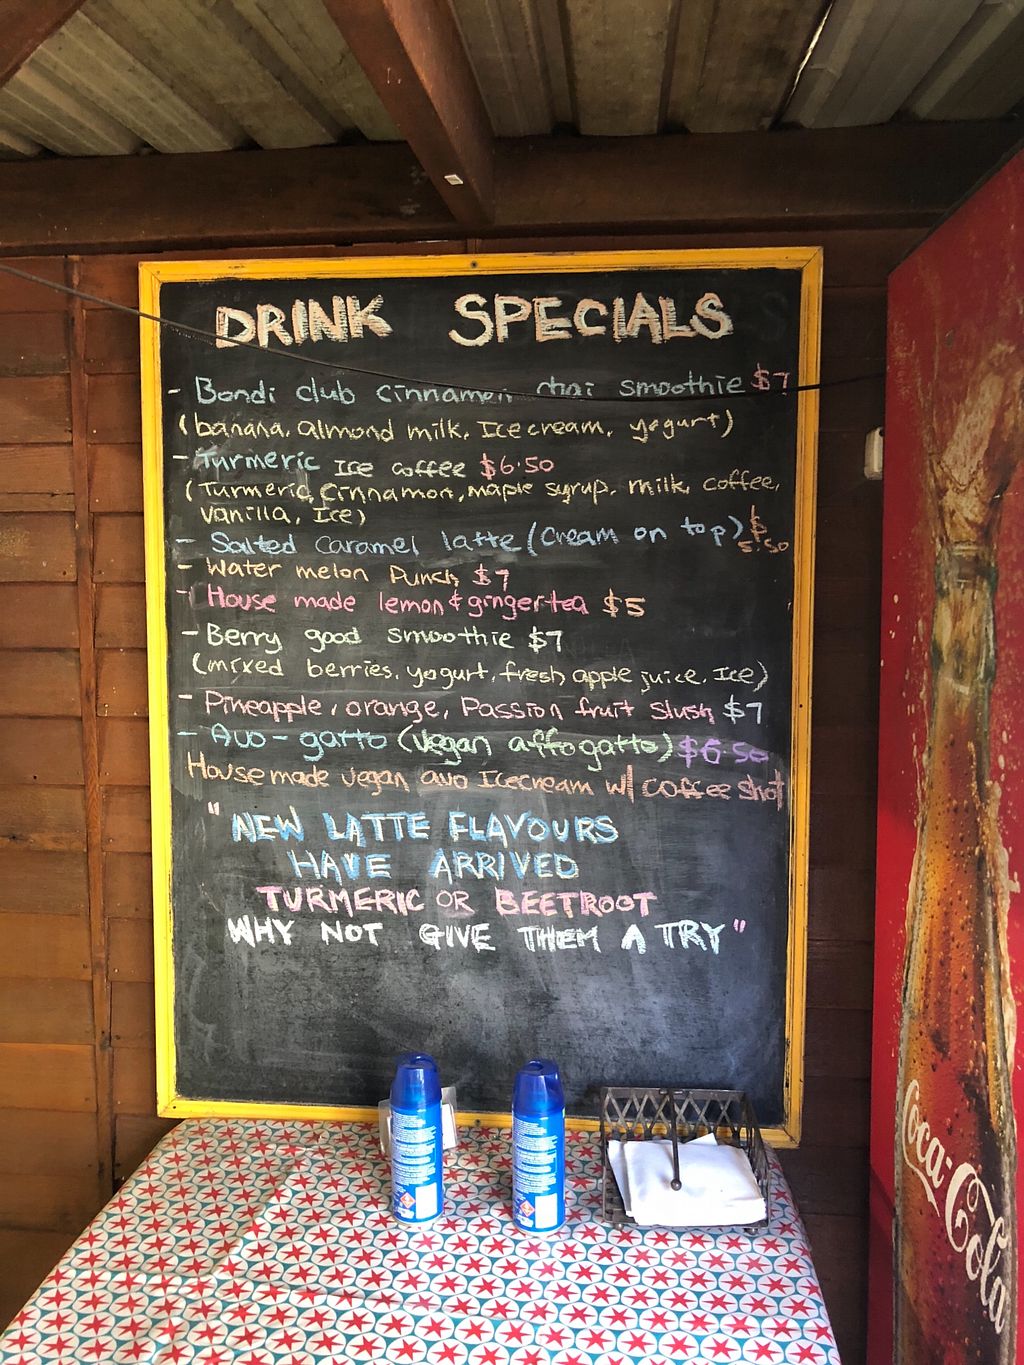 DRINK SPECIALS
- Bondi club cinnamon chai smoothie $7
(banana, almond milk, Ice cream, yogurt)
- Turmeric Ice coffee $6.50
(Turmeric, Cinnamon, maple syrup, milk, coffee,
vanilla, Ice)
- Salted Caramel latte (Cream on top) $5.50
- Water melon Punch $7
- House made lemon & ginger tea $5
- Berry good smoothie $7
(mixed berries, yogurt, fresh apple juice, Ice)
- Pineapple, orange, Passion fruit Slush $7
- Avo-gatto (vegan affogatto) $6.50
House made vegan avo Icecream w/ coffee shot
"NEW LATTE FLAVOURS
HAVE ARRIVED
TURMERIC OR BEETROOT
WHY NOT GIVE THEM A TRY"
Coca-Cola